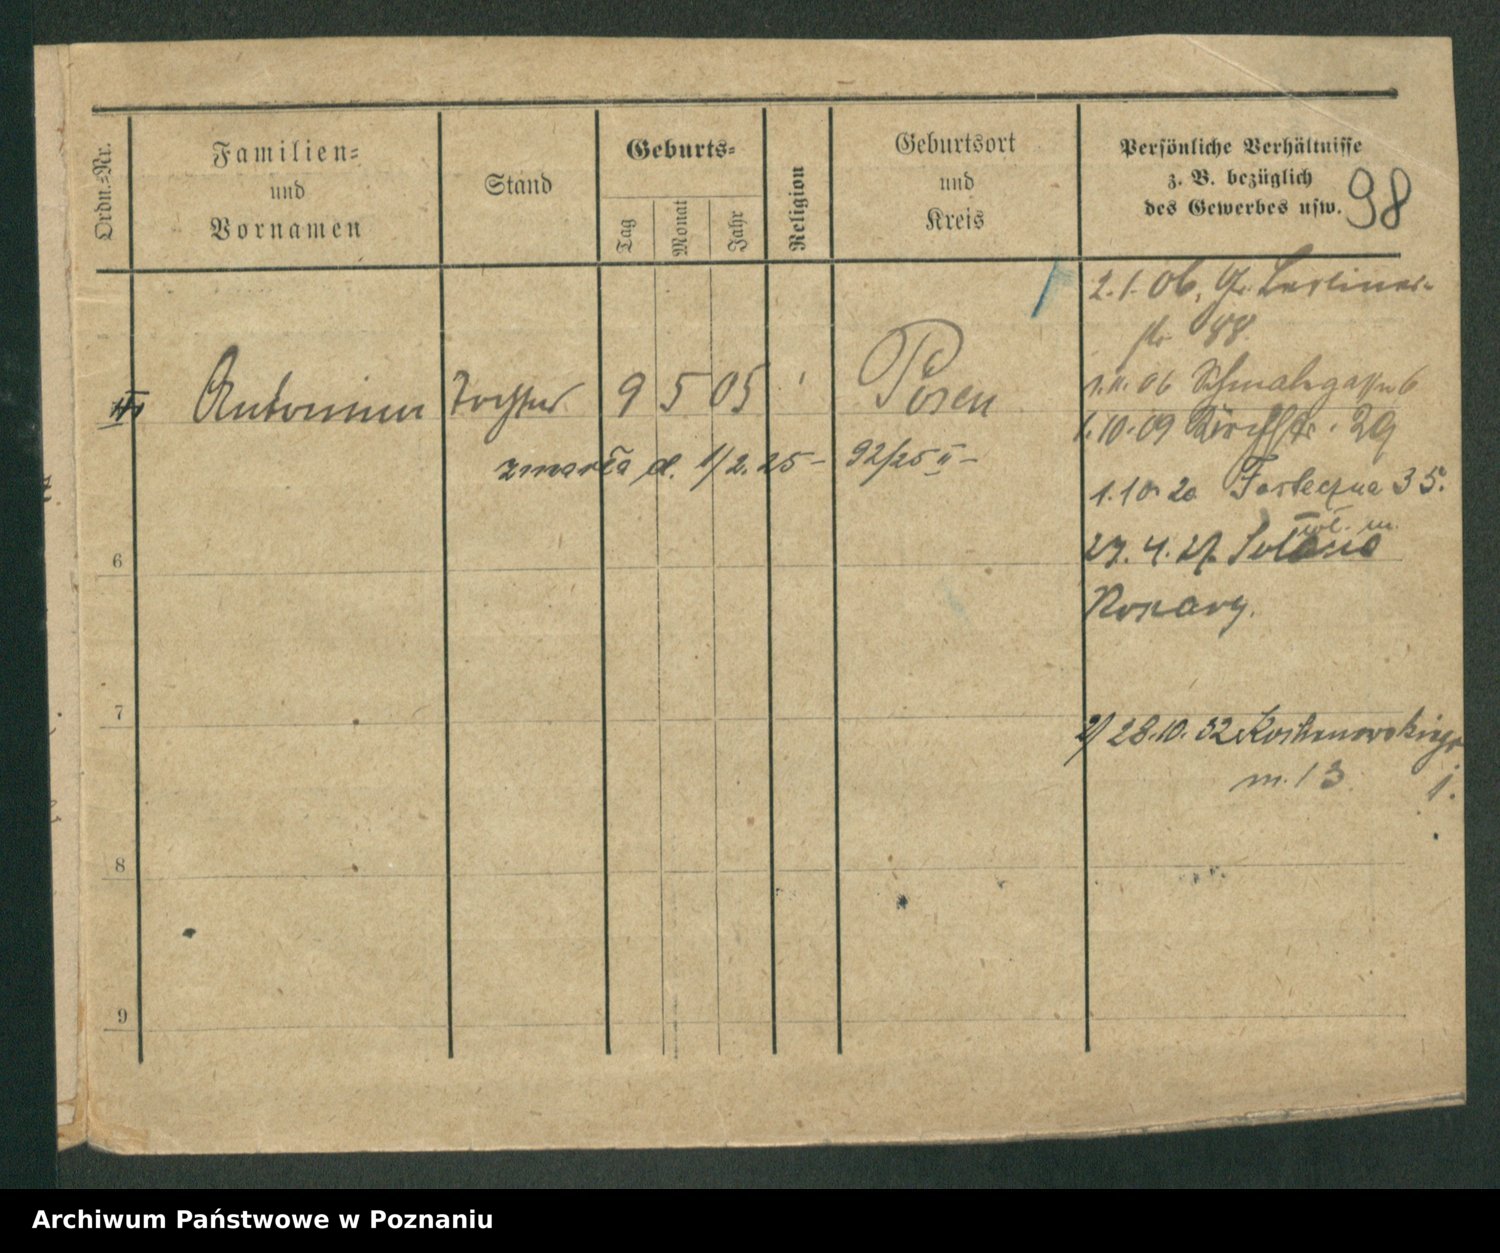 Ordn.-Nr.
Familien-
und
Vornamen
Stand
Geburts-
Tag
Monat
Jahr
Religion
Geburtsort
und
Kreis
Persönliche Verhältnisse
z. B. bezüglich
des Gewerbes usw.
98
2.1.06, Gr. Berliner-
str 88.
Antonina Tochter 9 5 05 Posen
1.11.06 Schmalegasse 6
1.10.09 29
zmarła d. 1/2.25 - 92/25 II -
1.10 20 Forteczna 35.
6
27.4.27.
7
2/ 28.10.32
m. 13
8
9
Archiwum Państwowe w Poznaniu